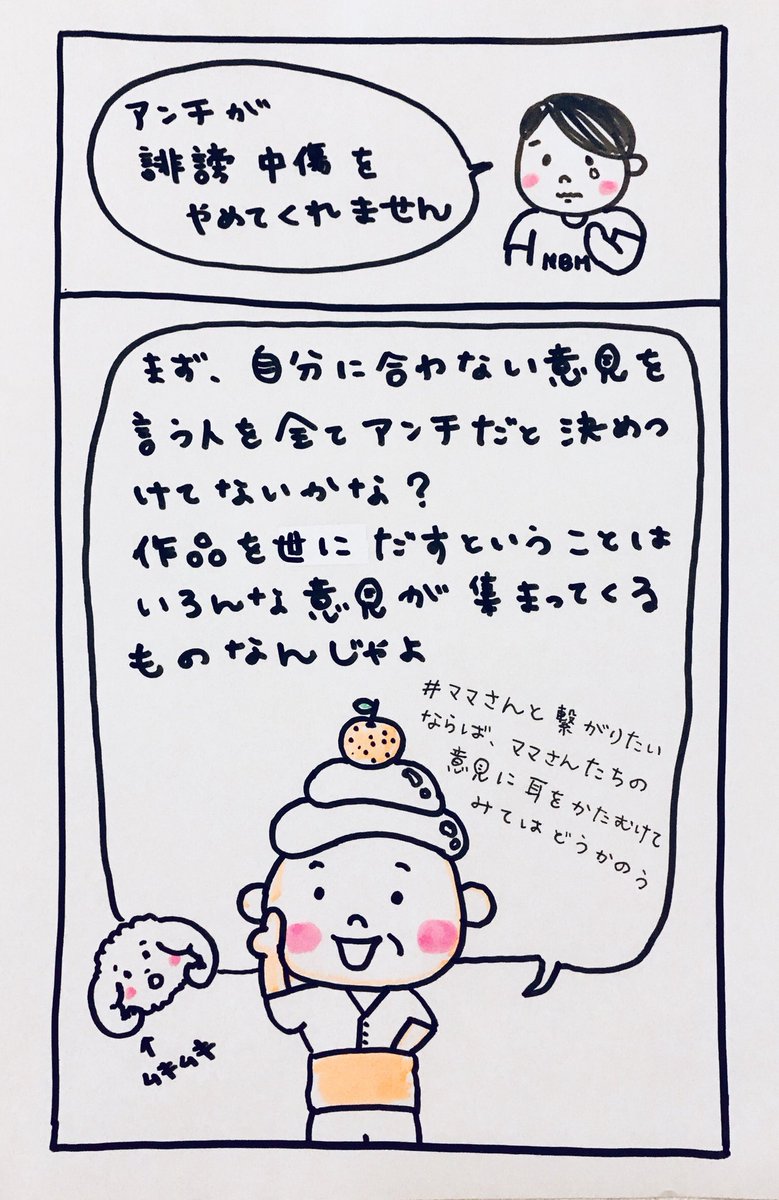 アンチが
誹謗中傷を
やめてくれません
NBM
まず、自分に合わない意見を
言う人を全てアンチだと決めつ
けてないかな？
作品を世にだすということは
いろんな意見が集まってくる
ものなんじゃよ
#ママさんと繋がりたい
ならば、ママさんたちの
意見に耳をかたむけて
みてはどうかのう
↑
ムキムキ